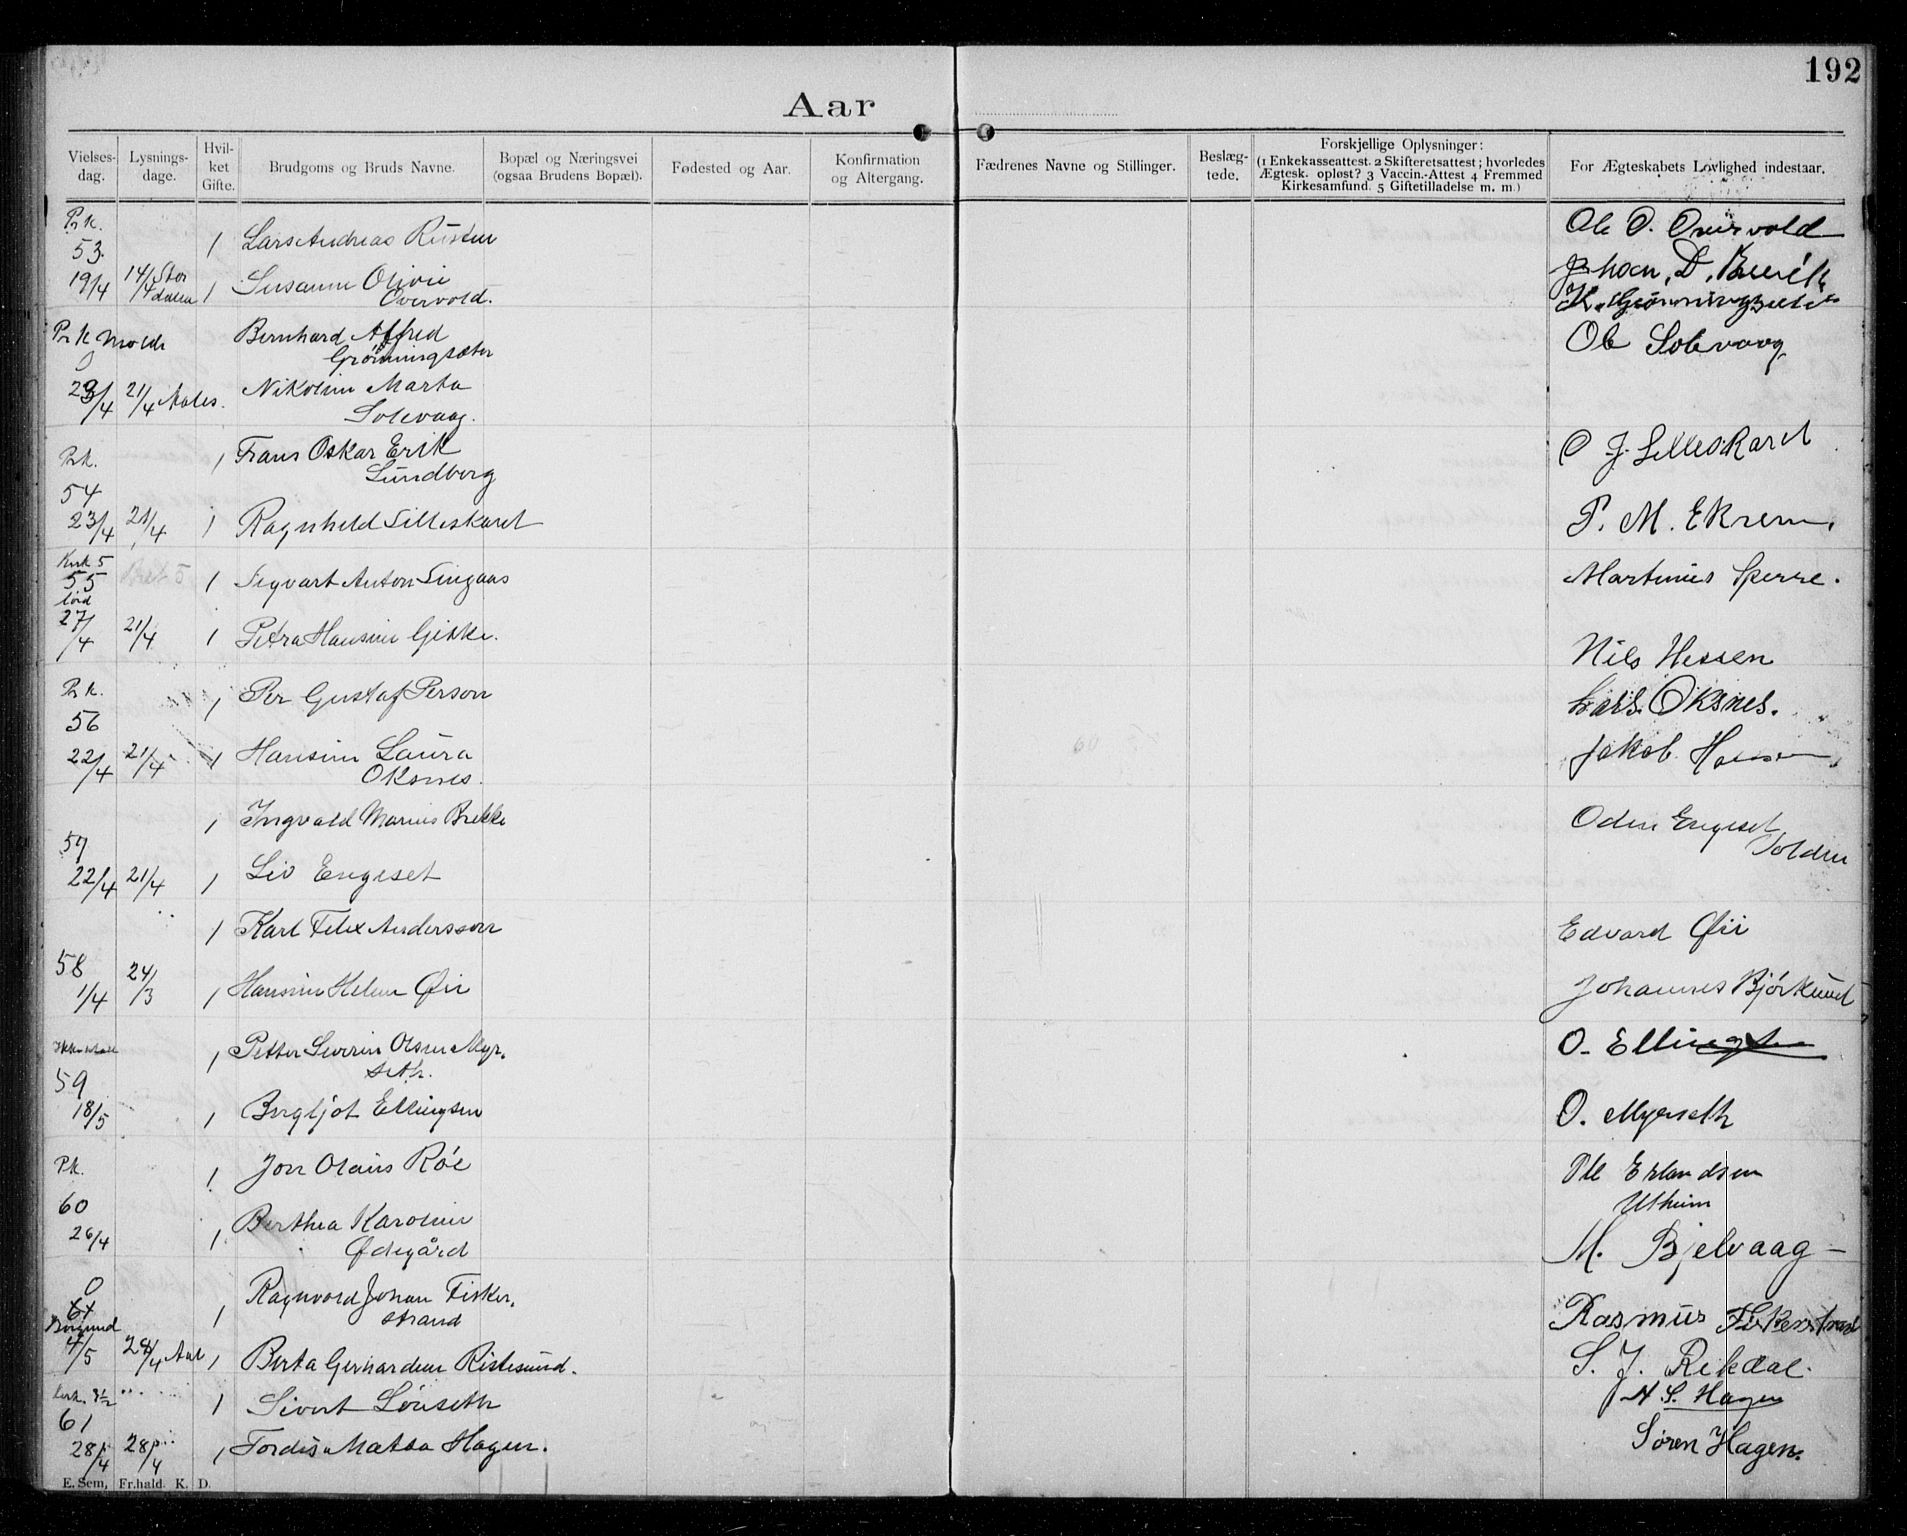 192
Aar
Vielses-dag.
Lysnings-dage.
Hvil-ket Gifte.
Brudgoms og Bruds Navne.
Bopæl og Næringsvei (ogsaa Brudens Bopæl).
Fødested og Aar.
Konfirmation og Altergang.
Fædrenes Navne og Stillinger.
Beslæg-tede.
Forskjellige Oplysninger: (1 Enkekasseattest. 2 Skifteretsattest; hvorledes Ægtesk. opløst? 3 Vaccin.-Attest 4 Fremmed Kirkesamfund. 5 Giftetilladelse m. m.)
For Ægteskabets Lovlighed indestaar.
53. 1 Lars Andreas Rusten Ole O. Overvold
19/4 14/4 Stordalen 1 Susanne Olivie
Overvold.
Molde Bernhard Alfred
Grønningsæter Ole Solevaag
23/4 21/4 Aales. Nikoline Marta
Solevaag.
1 Frans Oskar Erik O J. Lilleskaret
Lundborg
54
23/4 21/4 1 Ragnhild Lilleskaret P. M. Ekrem.
55 1 Sigvart Anton Singaas Martinus Sperre.
27/4 21/4 1 Petra Hansine Giske. Nils Hessen
1 Per Gustaf Person Lars. Oksnes.
56
22/4 21/4 1 Hansine Laura Jakob Hansen
Oksnes.
1 Ingvald Marius Brekke Odin Engeset
57 Volden
22/4 21/4 1 Liv Engeset
1 Karl Felix Andersson Edvard Øie
58
1/4 24/3 1 Hansine Helene Øie Johannes Bjørklund
1 Petter Severin Olsen Myr- O. Ellingsen
seth.
59
18/5 1 Bergljot Ellingsen O. Myrseth
1 Jon Olaus Röe Ole Erlandsen
60 Utheim
26/4 1 Berthea Karoline
Ødegård M. Bjelvaag
0
61 1 Ragnvald Johan Fisker- Rasmus Fiskerstrand
Borgund strand
4/5 28/4 Aal 1 Berta Gerhardine Ristesund. S. J. Rekdal.
1 Sivert Lønseth N S. Hagen
61
28/4 28/4 1 Tordis Matea Hagen. Søren Hagen.
E. Sem, Fr.hald. K. D.